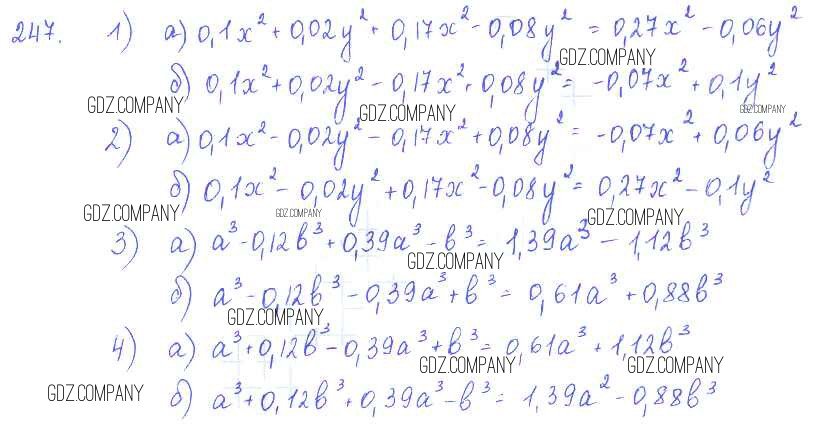 247. 1) а) 0,1x² + 0,02y² + 0,17x² - 0,08y² = 0,27x² - 0,06y²
GDZ.COMPANY
б) 0,1x² + 0,02y² - 0,17x² + 0,08y² = -0,07x² + 0,1y²
GDZ.COMPANY GDZ.COMPANY GDZ.COMPANY
2) а) 0,1x² - 0,02y² - 0,17x² + 0,08y² = -0,07x² + 0,06y²
б) 0,1x² - 0,02y² + 0,17x² - 0,08y² = 0,27x² - 0,1y²
GDZ.COMPANY GDZ.COMPANY GDZ.COMPANY
3) а) a³ - 0,12b³ + 0,39a³ - b³ = 1,39a³ - 1,12b³
GDZ.COMPANY
б) a³ - 0,12b³ - 0,39a³ + b³ = 0,61a³ + 0,88b³
GDZ.COMPANY
4) а) a³ + 0,12b³ - 0,39a³ + b³ = 0,61a³ + 1,12b³
GDZ.COMPANY GDZ.COMPANY
GDZ.COMPANY
б) a³ + 0,12b³ + 0,39a³ - b³ = 1,39a² - 0,88b³